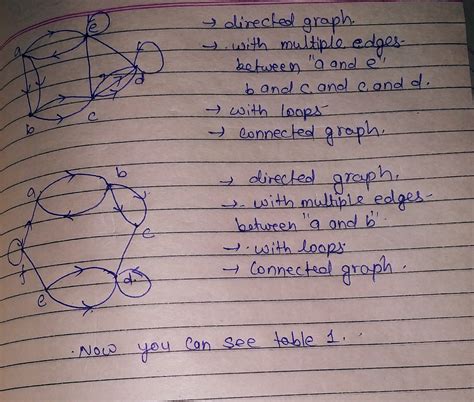 → directed graph.
→ with multiple edges-
between "a and e",
b and c and c and d.
→ with loops
→ connected graph.
a
e
b
c
d
→ directed graph.
→ with multiple edges-
between "a and b".
→ with loops
→ connected graph.
a
b
c
d
e
f
Now you can see table 1.